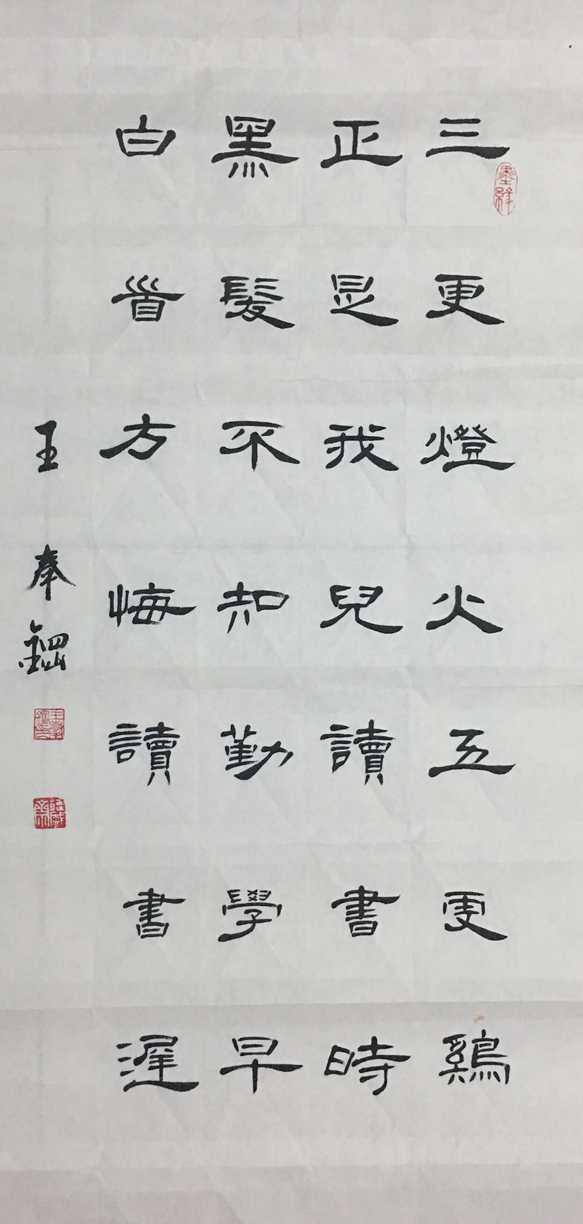 三更燈火五更鷄
正是我兒讀書時
黑髮不知勤學早
白首方悔讀書遲
王奉鋼
墨緣